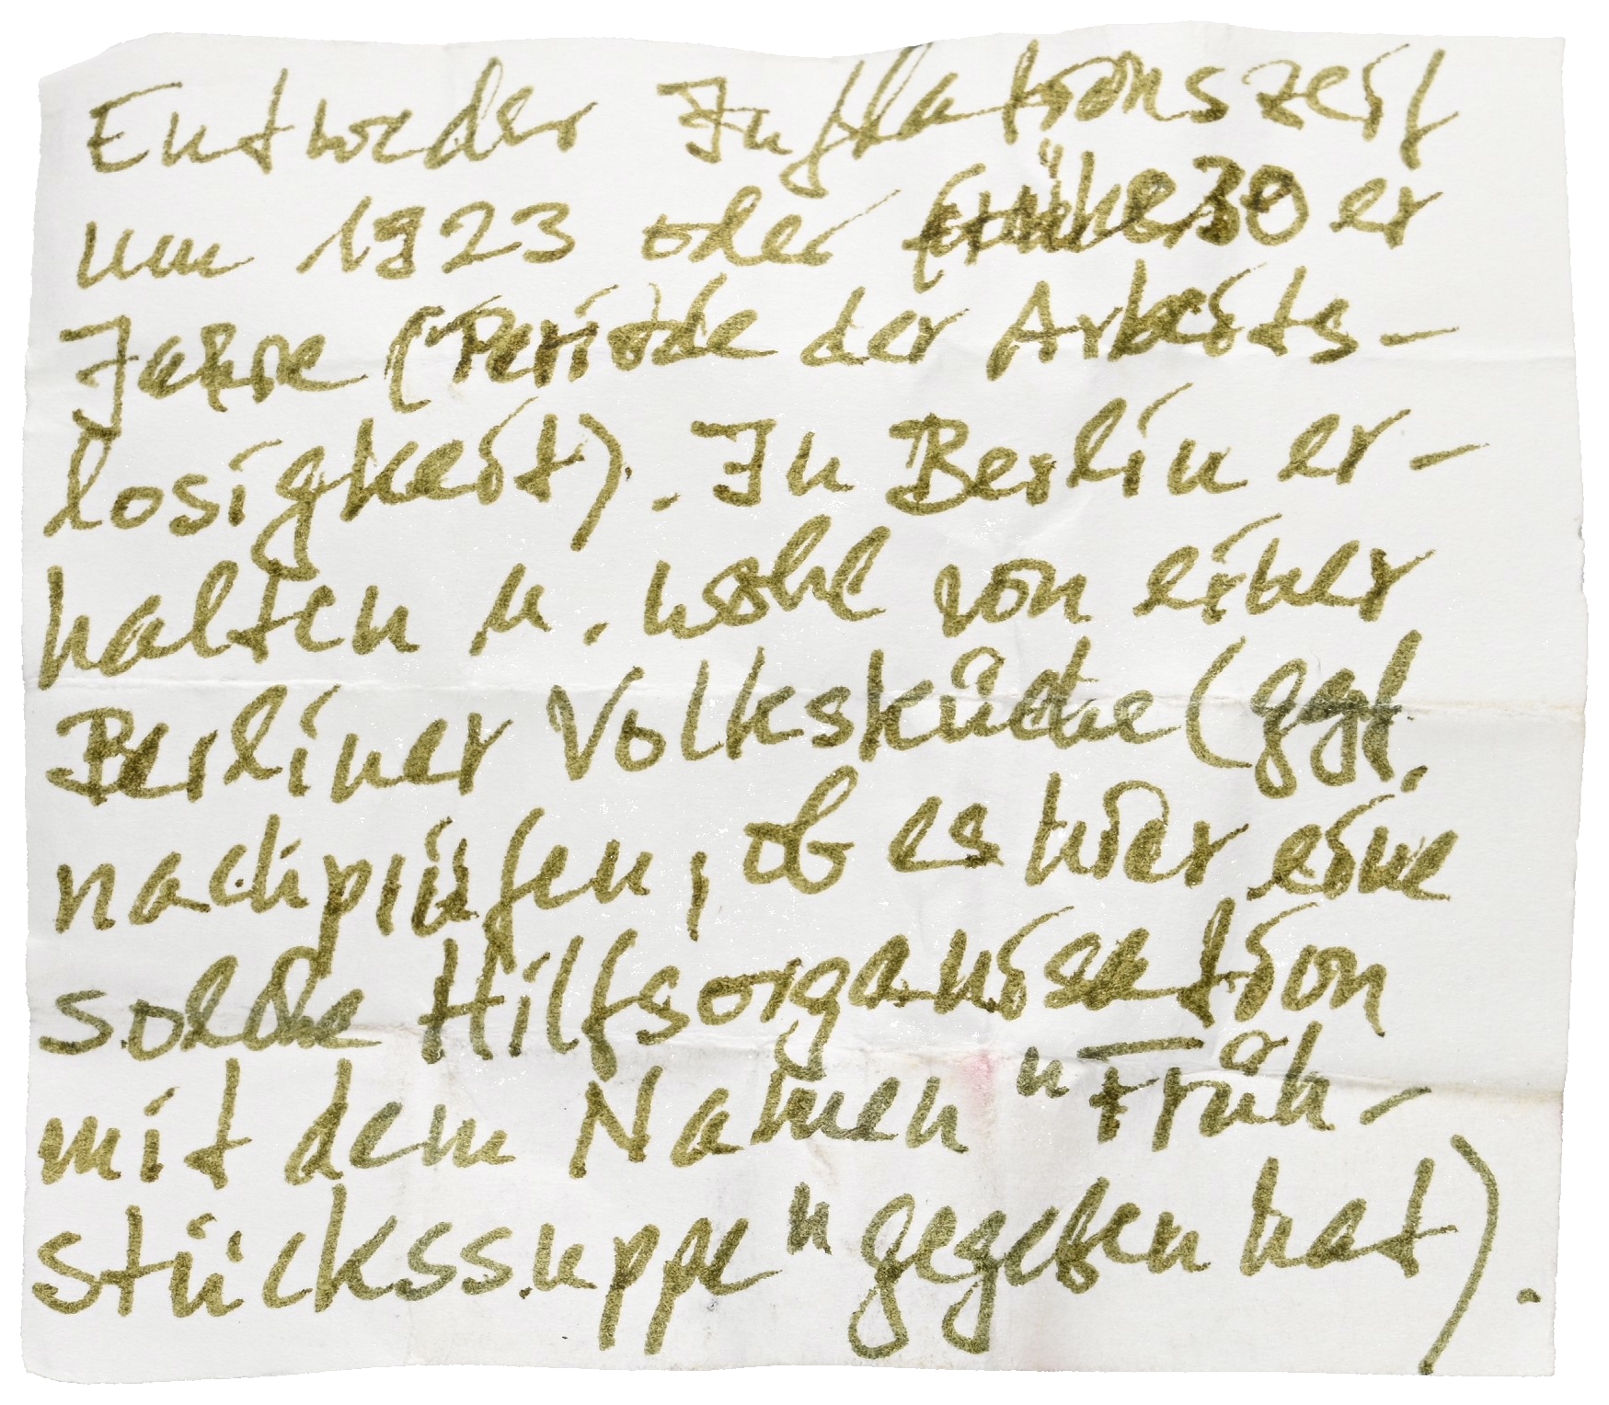 Entweder Inflationszeit
um 1923 oder frühe 30 er
Jahre (Periode der Arbeits-
losigkeit). In Berlin er-
halten u. wohl von einer
Berliner Volksküche (ggf.
nachprüfen, ob es hier eine
solche Hilfsorganisation
mit dem Namen "Früh-
stückssuppe" gegeben hat).